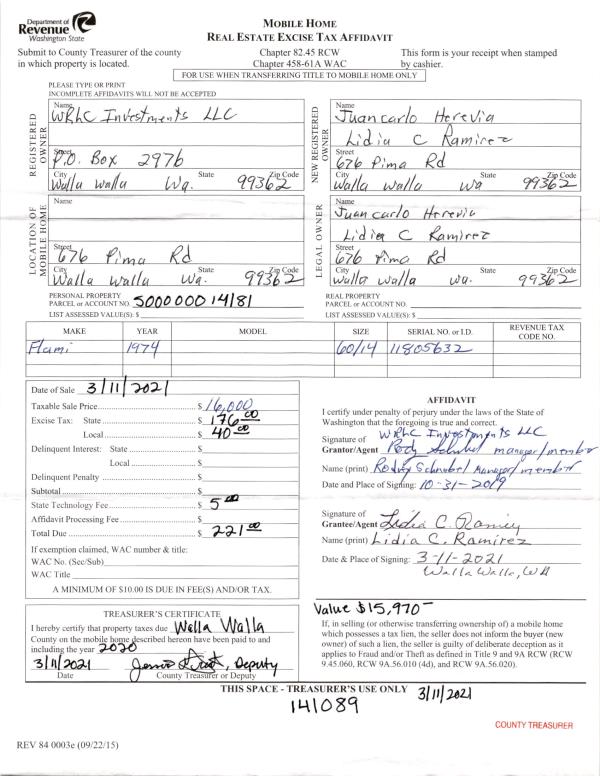 Department of
Revenue
Washington State
MOBILE HOME
REAL ESTATE EXCISE TAX AFFIDAVIT
Submit to County Treasurer of the county
in which property is located.
Chapter 82.45 RCW
Chapter 458-61A WAC
This form is your receipt when stamped
by cashier.
FOR USE WHEN TRANSFERRING TITLE TO MOBILE HOME ONLY
PLEASE TYPE OR PRINT
INCOMPLETE AFFIDAVITS WILL NOT BE ACCEPTED
REGISTERED OWNER
Name
WRhC Investments LLC
Street
P.O. Box 2976
City State Zip Code
Walla Walla Wa. 99362
NEW REGISTERED OWNER
Name
Juancarlo Herevia
Lidia C Ramirez
Street
676 Pima Rd
City State Zip Code
Walla Walla Wa 99362
LOCATION OF MOBILE HOME
Name
Street
676 Pima Rd
City State Zip Code
Walla Walla Wa. 99362
LEGAL OWNER
Name
Juan carlo Herevia
Lidia C Ramirez
Street
676 Pima Rd
City State Zip Code
Walla Walla Wa. 99362
PERSONAL PROPERTY
PARCEL or ACCOUNT NO. 500000014181
LIST ASSESSED VALUE(S): $
REAL PROPERTY
PARCEL or ACCOUNT NO.
LIST ASSESSED VALUE(S): $
MAKE YEAR MODEL SIZE SERIAL NO. or I.D. REVENUE TAX CODE NO.
Flami 1974 60/14 11805632
Date of Sale 3/11/2021
Taxable Sale Price $ 16,000
Excise Tax: State $ 176 00
Local $ 40 00
Delinquent Interest: State $
Local $
Delinquent Penalty $
Subtotal $
State Technology Fee $ 5 00
Affidavit Processing Fee $
Total Due $ 221 00
If exemption claimed, WAC number & title:
WAC No. (Sec/Sub)
WAC Title
A MINIMUM OF $10.00 IS DUE IN FEE(S) AND/OR TAX.
AFFIDAVIT
I certify under penalty of perjury under the laws of the State of
Washington that the foregoing is true and correct.
WRhC Investments LLC
Signature of
Grantor/Agent manager/member
Name (print) Rodry Schnebel Manager/member
Date and Place of Signing: 10-31-2019
Signature of
Grantee/Agent Lidia C. Ramirez
Name (print) Lidia C. Ramirez
Date & Place of Signing: 3-11-2021
Walla Walla, WA
TREASURER'S CERTIFICATE
I hereby certify that property taxes due Walla Walla
County on the mobile home described hereon have been paid to and
including the year 2020
3/11/2021 Deputy
Date County Treasurer or Deputy
Value $15,970-
If, in selling (or otherwise transferring ownership of) a mobile home
which possesses a tax lien, the seller does not inform the buyer (new
owner) of such a lien, the seller is guilty of deliberate deception as it
applies to Fraud and/or Theft as defined in Title 9 and 9A RCW (RCW
9.45.060, RCW 9A.56.010 (4d), and RCW 9A.56.020).
THIS SPACE - TREASURER'S USE ONLY 3/11/2021
141089
COUNTY TREASURER
REV 84 0003e (09/22/15)